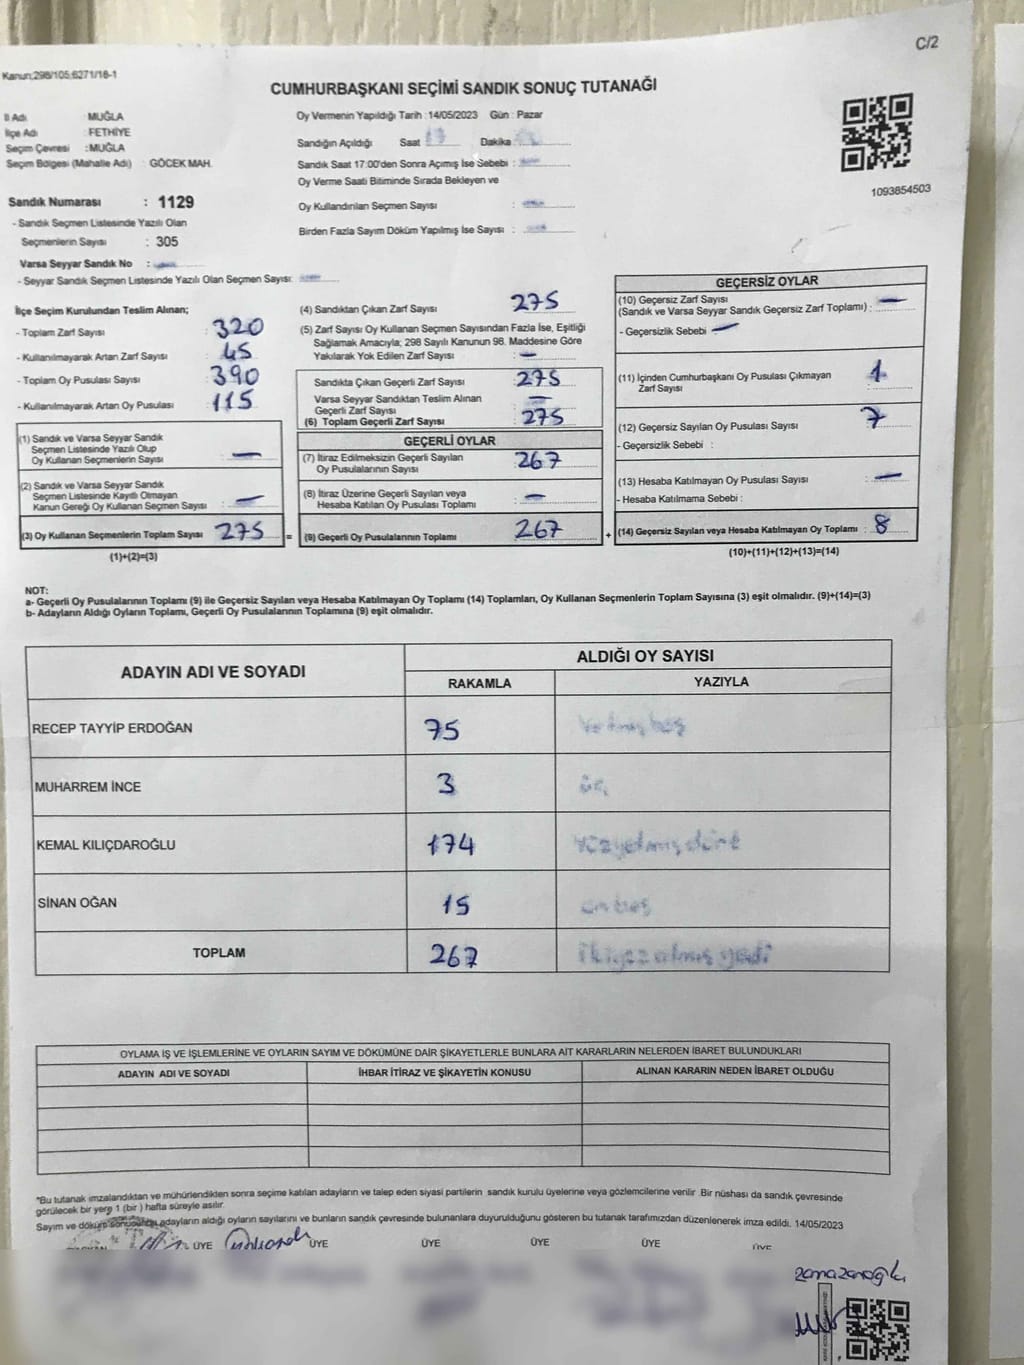 C/2
Kanun;298/105;6271/18-1
CUMHURBAŞKANI SEÇİMİ SANDIK SONUÇ TUTANAĞI
İl Adı : MUĞLA
İlçe Adı : FETHİYE
Seçim Çevresi : MUĞLA
Seçim Bölgesi (Mahalle Adı) : GÖCEK MAH.
Sandık Numarası : 1129
- Sandık Seçmen Listesinde Yazılı Olan
Seçmenlerin Sayısı : 305
Varsa Seyyar Sandık No :
- Seyyar Sandık Seçmen Listesinde Yazılı Olan Seçmen Sayısı:
Oy Vermenin Yapıldığı Tarih : 14/05/2023 Gün : Pazar
Sandığın Açıldığı Saat Dakika :
Sandık Saat 17:00'den Sonra Açımış İse Sebebi :
Oy Verme Saati Bitiminde Sırada Bekleyen ve
Oy Kullandırılan Seçmen Sayısı :
Birden Fazla Sayım Döküm Yapılmış İse Sayısı :
1093854503
İlçe Seçim Kurulundan Teslim Alınan;
- Toplam Zarf Sayısı : 320
- Kullanılmayarak Artan Zarf Sayısı : 45
- Toplam Oy Pusulası Sayısı : 390
- Kullanılmayarak Artan Oy Pusulası : 115
(1) Sandık ve Varsa Seyyar Sandık
Seçmen Listesinde Yazılı Olup
Oy Kullanan Seçmenlerin Sayısı : —
(2) Sandık ve Varsa Seyyar Sandık
Seçmen Listesinde Kayıtlı Olmayan
Kanun Gereği Oy Kullanan Seçmen Sayısı : —
(3) Oy Kullanan Seçmenlerin Toplam Sayısı : 275 =
(1)+(2)=(3)
(4) Sandıktan Çıkan Zarf Sayısı : 275
(5) Zarf Sayısı Oy Kullanan Seçmen Sayısından Fazla İse, Eşitliği
Sağlamak Amacıyla; 298 Sayılı Kanunun 98. Maddesine Göre
Yakılarak Yok Edilen Zarf Sayısı : —
Sandıkta Çıkan Geçerli Zarf Sayısı : 275
Varsa Seyyar Sandıktan Teslim Alınan
Geçerli Zarf Sayısı : —
(6) Toplam Geçerli Zarf Sayısı : 275
GEÇERLİ OYLAR
(7) İtiraz Edilmeksizin Geçerli Sayılan
Oy Pusulalarının Sayısı : 267
(8) İtiraz Üzerine Geçerli Sayılan veya
Hesaba Katılan Oy Pusulası Toplamı : —
(9) Geçerli Oy Pusulalarının Toplamı : 267 +
GEÇERSİZ OYLAR
(10) Geçersiz Zarf Sayısı
(Sandık ve Varsa Seyyar Sandık Geçersiz Zarf Toplamı) : —
- Geçersizlik Sebebi : —
(11) İçinden Cumhurbaşkanı Oy Pusulası Çıkmayan
Zarf Sayısı : 1
(12) Geçersiz Sayılan Oy Pusulası Sayısı : 7
- Geçersizlik Sebebi :
(13) Hesaba Katılmayan Oy Pusulası Sayısı : —
- Hesaba Katılmama Sebebi :
(14) Geçersiz Sayılan veya Hesaba Katılmayan Oy Toplamı : 8
(10)+(11)+(12)+(13)=(14)
NOT:
a- Geçerli Oy Pusulalarının Toplamı (9) ile Geçersiz Sayılan veya Hesaba Katılmayan Oy Toplamı (14) Toplamları, Oy Kullanan Seçmenlerin Toplam Sayısına (3) eşit olmalıdır. (9)+(14)=(3)
b- Adayların Aldığı Oyların Toplamı, Geçerli Oy Pusulalarının Toplamına (9) eşit olmalıdır.
ADAYIN ADI VE SOYADI ALDIĞI OY SAYISI
RAKAMLA YAZIYLA
RECEP TAYYİP ERDOĞAN 75 Yetmiş beş
MUHARREM İNCE 3 üç
KEMAL KILIÇDAROĞLU 174 Yüzyetmiş dört
SİNAN OĞAN 15 on beş
TOPLAM 267 İkiyüz altmış yedi
OYLAMA İŞ VE İŞLEMLERİNE VE OYLARIN SAYIM VE DÖKÜMÜNE DAİR ŞİKAYETLERLE BUNLARA AİT KARARLARIN NELERDEN İBARET BULUNDUKLARI
ADAYIN ADI VE SOYADI İHBAR İTİRAZ VE ŞİKAYETİN KONUSU ALINAN KARARIN NEDEN İBARET OLDUĞU
*Bu tutanak imzalandıktan ve mühürlendikten sonra seçime katılan adayların ve talep eden siyasi partilerin sandık kurulu üyelerine veya gözlemcilerine verilir .Bir nüshası da sandık çevresinde
görülecek bir yere 1 (bir ) hafta süreyle asılır.
Sayım ve döküm sonucunda adayların aldığı oyların sayılarını ve bunların sandık çevresinde bulunanlara duyurulduğunu gösteren bu tutanak tarafımızdan düzenlenerek imza edildi. 14/05/2023
BAŞKAN ÜYE ÜYE ÜYE ÜYE ÜYE ÜYE